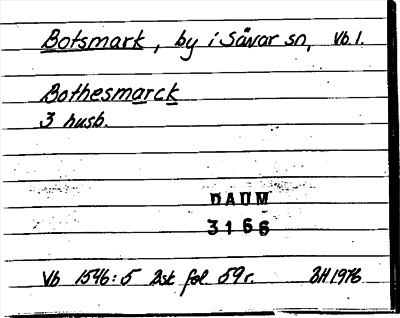 Botsmark, by i Sävar sn, Vb.l.
Bothesmarck
3 husb.
DAUM
3166
Vb 1546:5 Bsk fol 59r. BH 1976